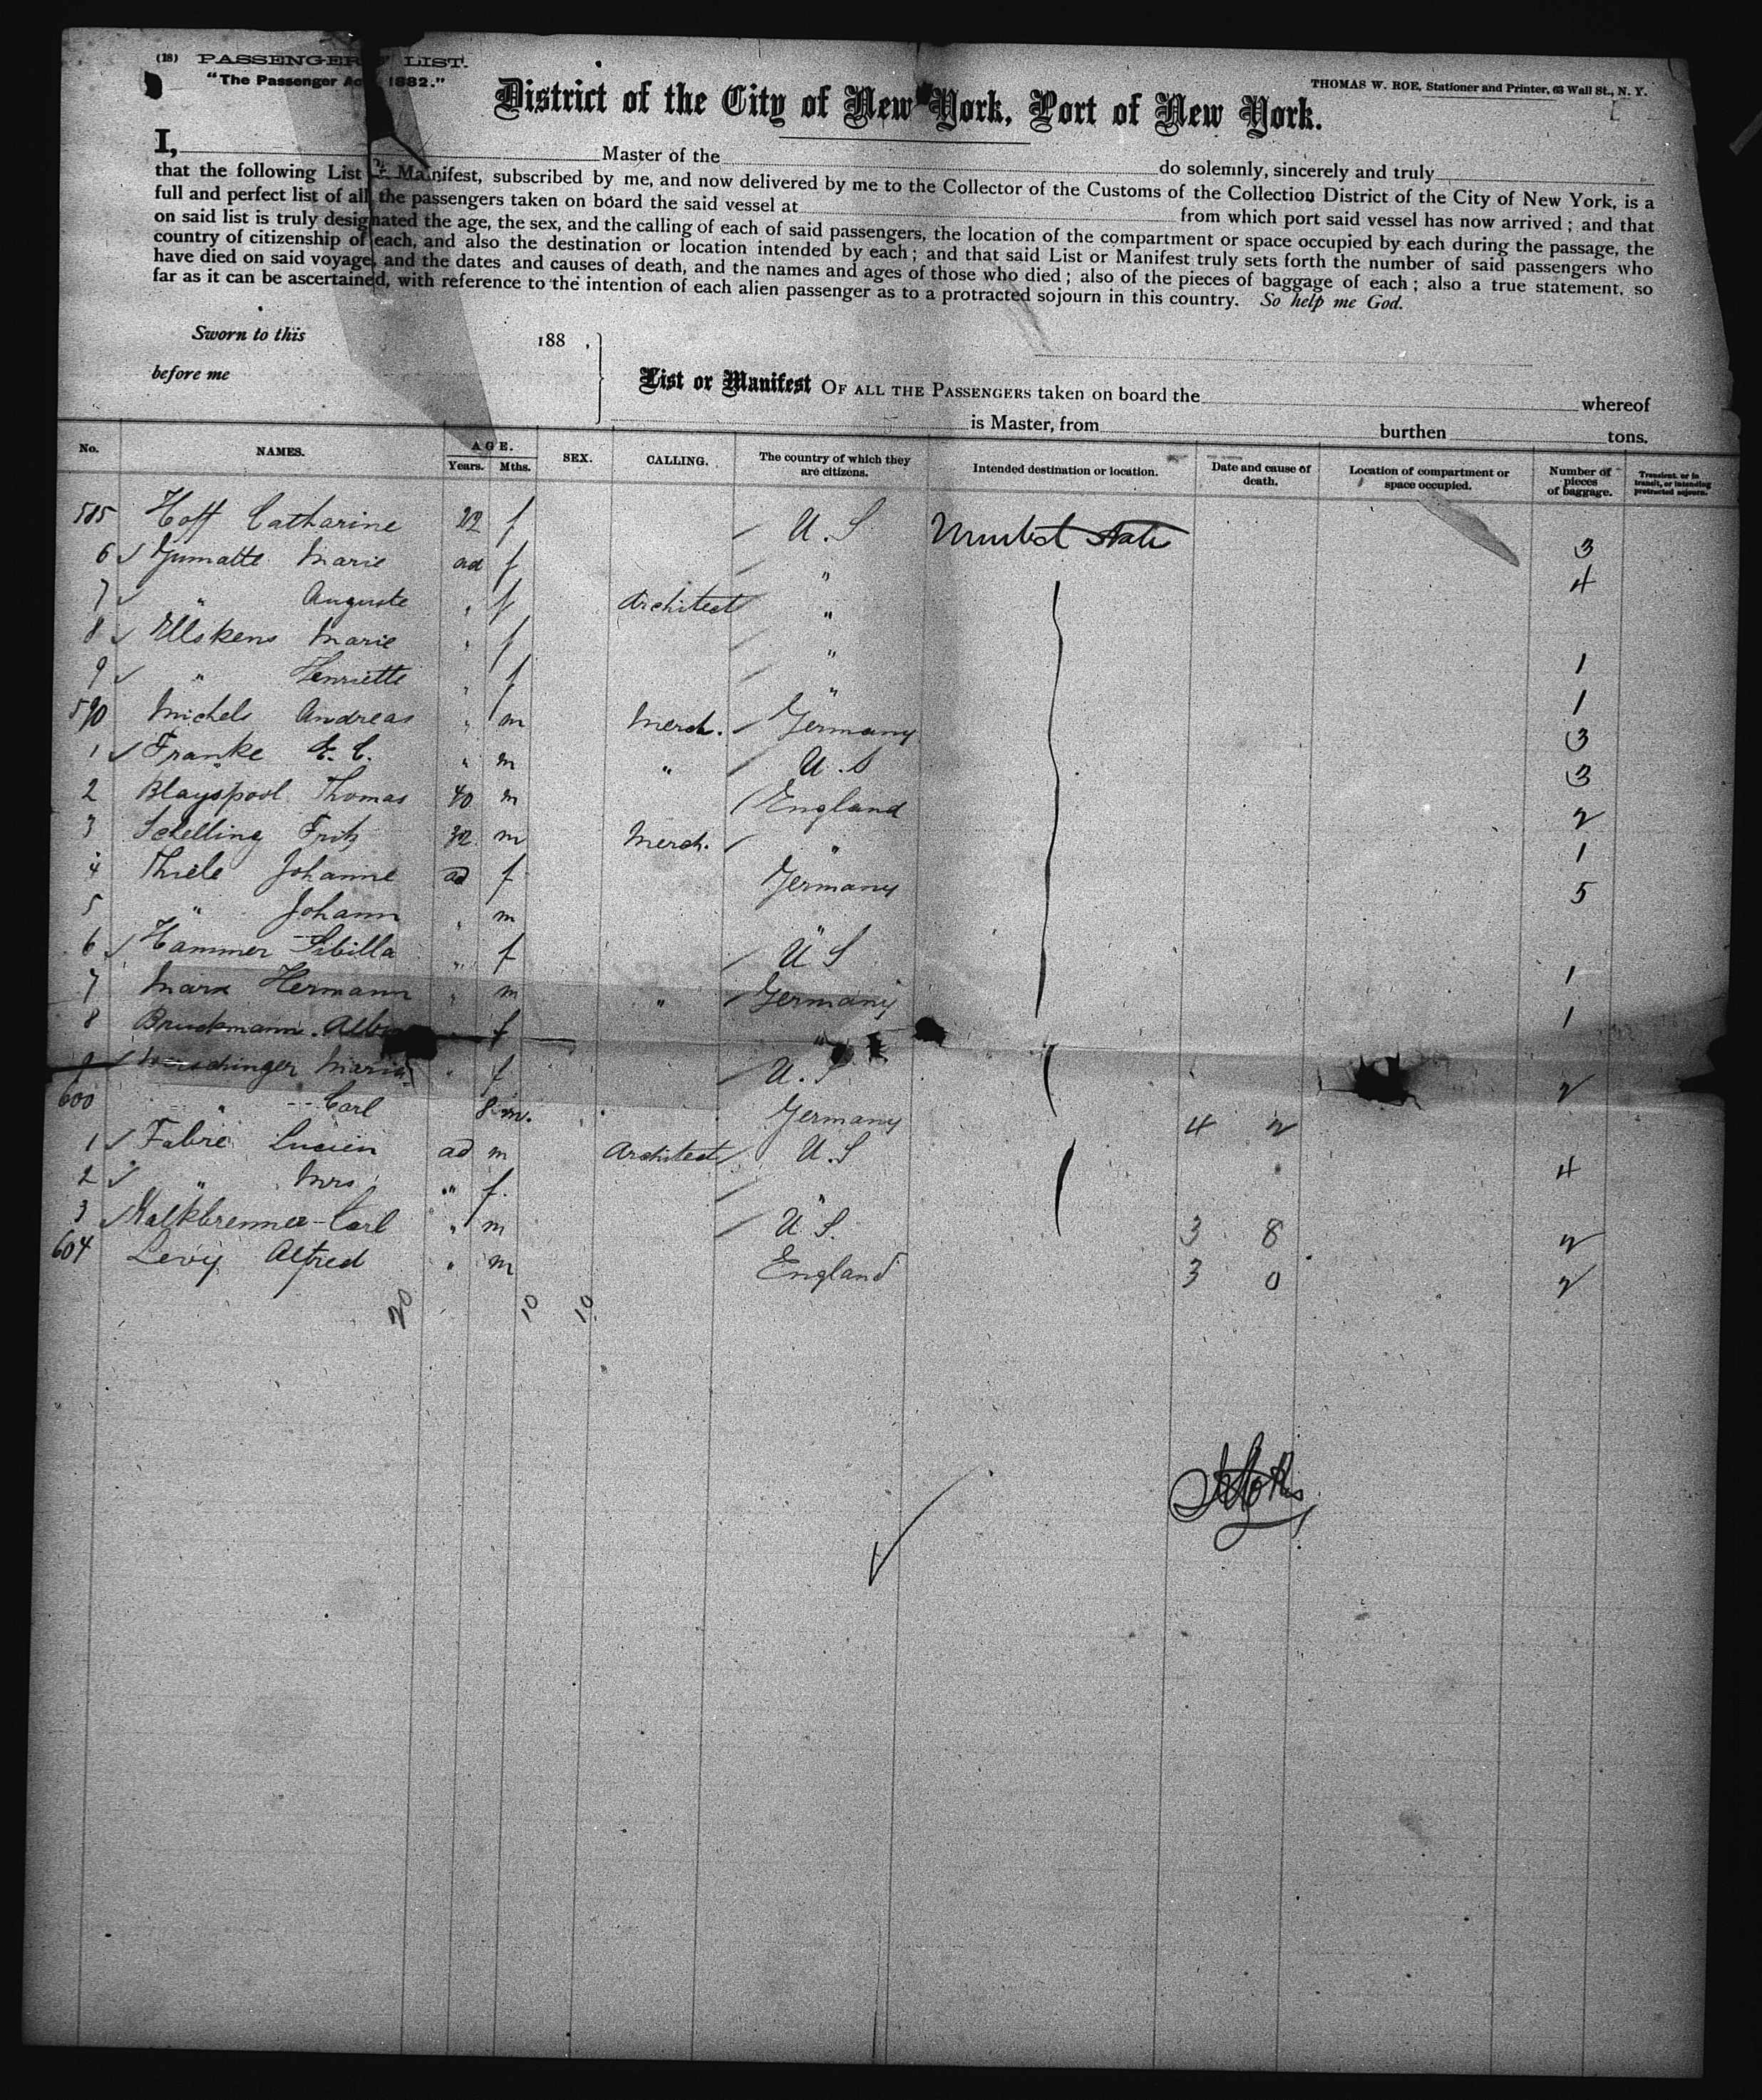 (18) PASSENGER LIST.
"The Passenger Act 1882."
THOMAS W. ROE, Stationer and Printer, 63 Wall St., N. Y.
District of the City of New York, Port of New York.
I, Master of the do solemnly, sincerely and truly
that the following List or Manifest, subscribed by me, and now delivered by me to the Collector of the Customs of the Collection District of the City of New York, is a
full and perfect list of all the passengers taken on board the said vessel at from which port said vessel has now arrived; and that
on said list is truly designated the age, the sex, and the calling of each of said passengers, the location of the compartment or space occupied by each during the passage, the
country of citizenship of each, and also the destination or location intended by each; and that said List or Manifest truly sets forth the number of said passengers who
have died on said voyage, and the dates and causes of death, and the names and ages of those who died; also of the pieces of baggage of each; also a true statement, so
far as it can be ascertained, with reference to the intention of each alien passenger as to a protracted sojourn in this country. So help me God.
Sworn to this 188 ,
before me
List or Manifest OF ALL THE PASSENGERS taken on board the whereof
is Master, from burthen tons.
No. NAMES. AGE. Years. Mths. SEX. CALLING. The country of which they are citizens. Intended destination or location. Date and cause of death. Location of compartment or space occupied. Number of pieces of baggage. Transient, or in transit, or intending protracted sojourn.
585 Hoff Catharine 22 f U.S 3
6 Marie ad f " 4
7 " Auguste " f Architect "
8 Ellskens Marie " f " 1
9 " Henriette " f " 1
590 Michels Andreas " m Merch. Germany 3
1 Franke E. C. " m " U.S 3
2 Blayspool Thomas 40 m England 2
3 Schelling Fritz 32 m Merch. " 1
4 Thiele Johanne ad f Germany 5
5 " Johann " m "
6 Hammer Sibilla " f U S 1
7 Marx Hermann " m " Germany 1
8 Bruckmann f "
9 Maria " f U.S 2
600 " Carl 8 m. Germany 4 2
1 Fabre Lucien ad m Architect U.S 4
2 " Mrs " f. "
3 Kalkbrenner Carl " m U S. 3 8 2
604 Levy Alfred " m England 3 0 2
20 10 10